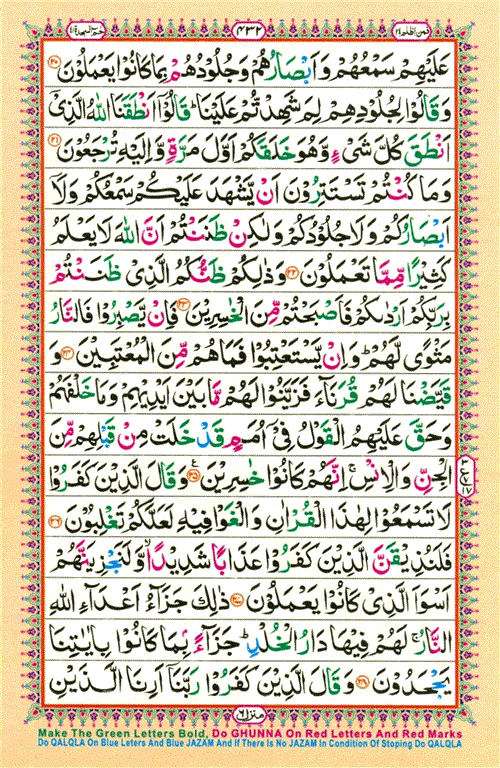 حٰمٓ السجدة ۴۱ ۴۳۲ فمن اظلم ۲۴
عَلَيْهِمْ سَمْعُهُمْ وَاَبْصَارُهُمْ وَجُلُوْدُهُمْ بِمَا كَانُوْا يَعْمَلُوْنَ ۲۰
وَقَالُوْا لِجُلُوْدِهِمْ لِمَ شَهِدْتُّمْ عَلَيْنَا ؕ قَالُوْۤا اَنْطَقَنَا اللّٰهُ الَّذِيْۤ
اَنْطَقَ كُلَّ شَيْءٍ وَّهُوَ خَلَقَكُمْ اَوَّلَ مَرَّةٍ وَّاِلَيْهِ تُرْجَعُوْنَ ۲۱
وَمَا كُنْتُمْ تَسْتَتِرُوْنَ اَنْ يَّشْهَدَ عَلَيْكُمْ سَمْعُكُمْ وَلَاۤ
اَبْصَارُكُمْ وَلَا جُلُوْدُكُمْ وَلٰكِنْ ظَنَنْتُمْ اَنَّ اللّٰهَ لَا يَعْلَمُ
كَثِيْرًا مِّمَّا تَعْمَلُوْنَ ۲۲ وَذٰلِكُمْ ظَنُّكُمُ الَّذِيْ ظَنَنْتُمْ
بِرَبِّكُمْ اَرْدٰىكُمْ فَاَصْبَحْتُمْ مِّنَ الْخٰسِرِيْنَ ۲۳ فَاِنْ يَّصْبِرُوْا فَالنَّارُ
مَثْوًى لَّهُمْ ؕ وَاِنْ يَّسْتَعْتِبُوْا فَمَا هُمْ مِّنَ الْمُعْتَبِيْنَ ۲۴ وَ
قَيَّضْنَا لَهُمْ قُرَنَآءَ فَزَيَّنُوْا لَهُمْ مَّا بَيْنَ اَيْدِيْهِمْ وَمَا خَلْفَهُمْ
وَحَقَّ عَلَيْهِمُ الْقَوْلُ فِيْۤ اُمَمٍ قَدْ خَلَتْ مِنْ قَبْلِهِمْ مِّنَ
الْجِنِّ وَالْاِنْسِ ۚ اِنَّهُمْ كَانُوْا خٰسِرِيْنَ ۲۵ وَقَالَ الَّذِيْنَ كَفَرُوْا
۳ ع ۱۷
لَا تَسْمَعُوْا لِهٰذَا الْقُرْاٰنِ وَالْغَوْا فِيْهِ لَعَلَّكُمْ تَغْلِبُوْنَ ۲۶
فَلَنُذِيْقَنَّ الَّذِيْنَ كَفَرُوْا عَذَابًا شَدِيْدًا ۙ وَّلَنَجْزِيَنَّهُمْ
اَسْوَاَ الَّذِيْ كَانُوْا يَعْمَلُوْنَ ۲۷ ذٰلِكَ جَزَآءُ اَعْدَآءِ اللّٰهِ
النَّارُ ۚ لَهُمْ فِيْهَا دَارُ الْخُلْدِ ؕ جَزَآءًۢ بِمَا كَانُوْا بِاٰيٰتِنَا
يَجْحَدُوْنَ ۲۸ وَقَالَ الَّذِيْنَ كَفَرُوْا رَبَّنَاۤ اَرِنَا الَّذَيْنِ
منزل ۶
Make The Green Letters Bold, Do GHUNNA On Red Letters And Red Marks
Do QALQLA On Blue Leters And Blue JAZAM And If There Is No JAZAM In Condition Of Stoping Do QALQLA